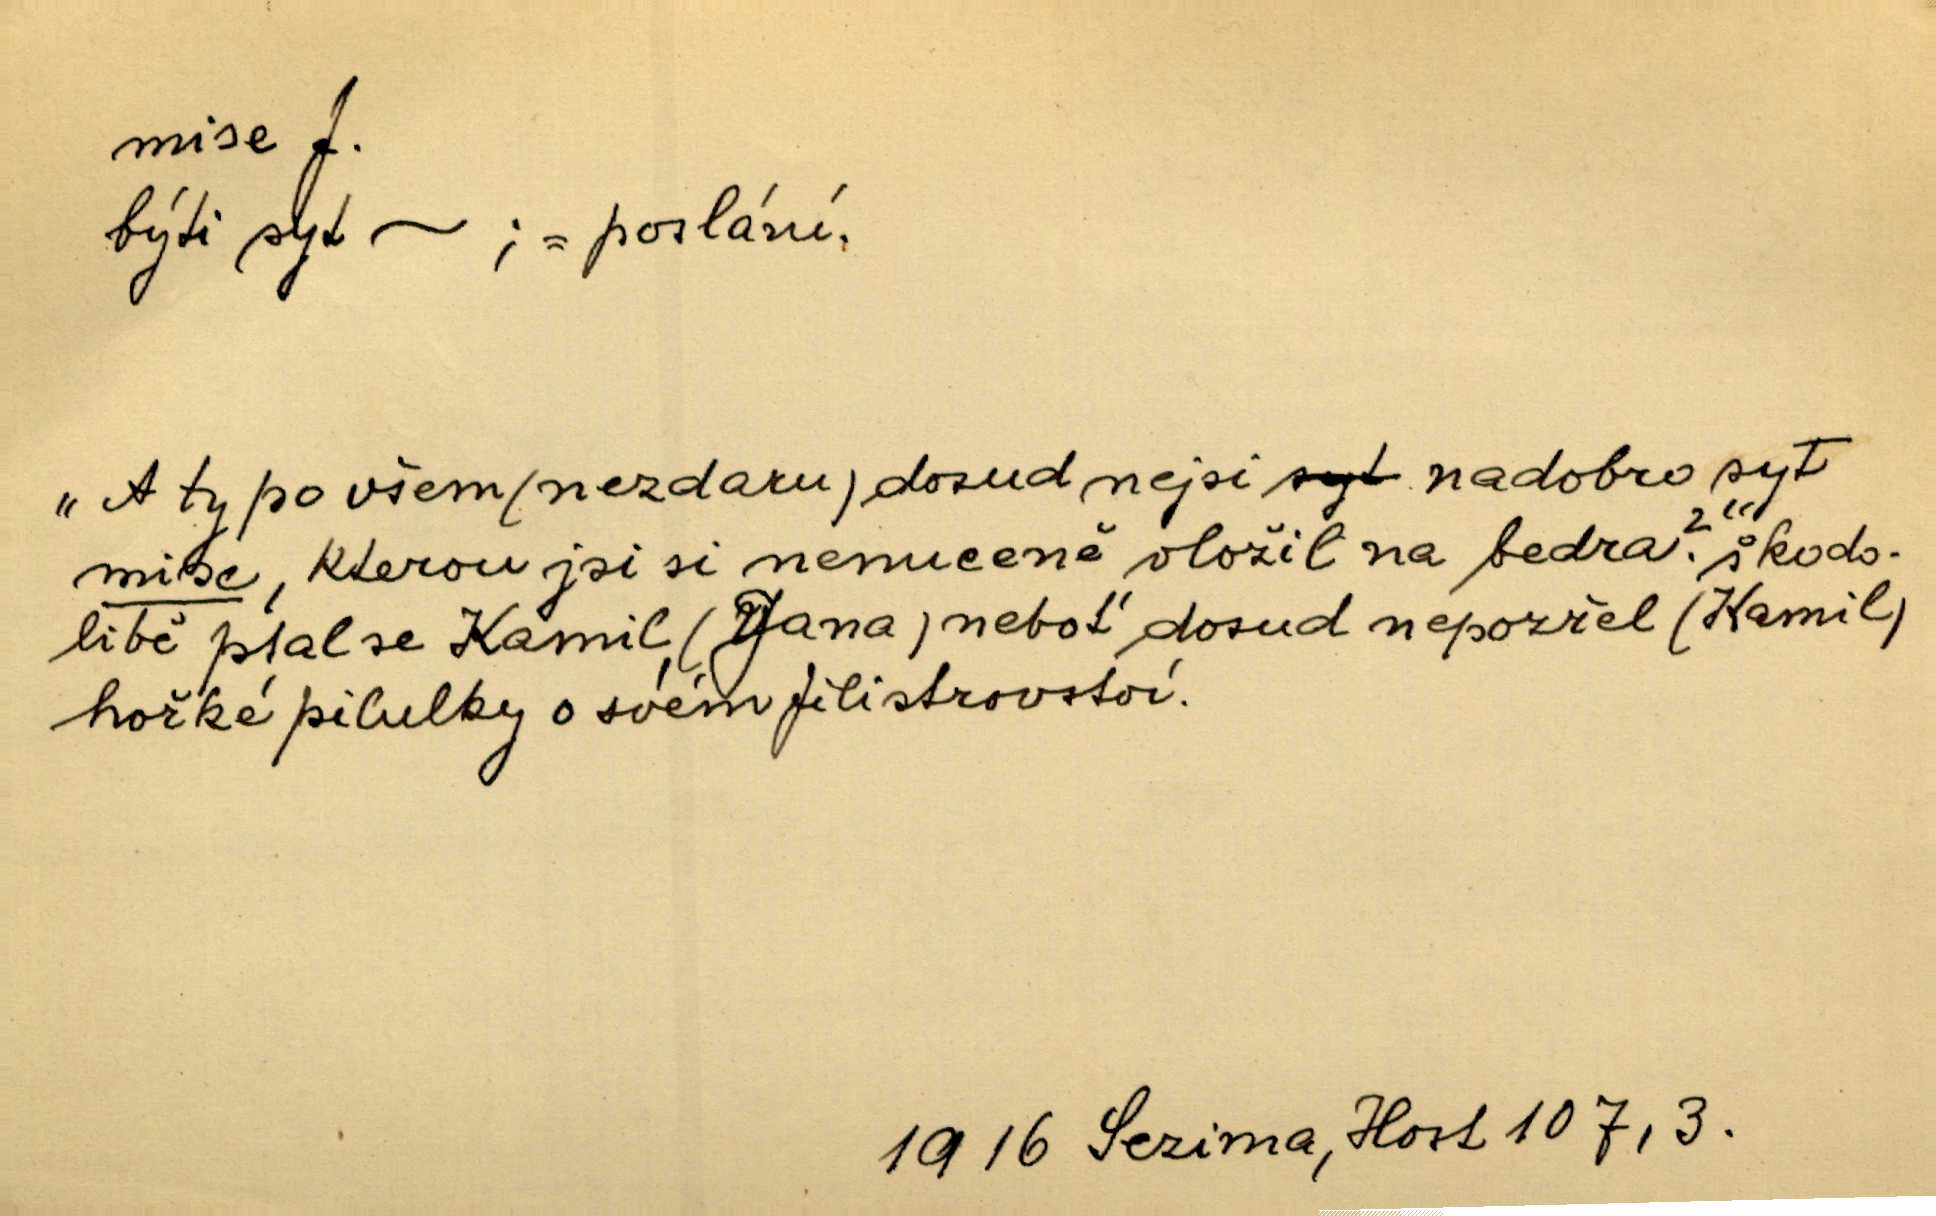 mise f.
býti syt ~ ; = poslání.
„A ty po všem (nezdaru) dosud nejsi syt nadobro syt
mise, kterou jsi si nenuceně vložil na bedra?“ škodo-
libě ptal se Kamil, (Jana) neboť dosud nepozřel (Kamil)
hořké pilulky o svém filistrovství.
1916 Sezima, Host 107, 3.